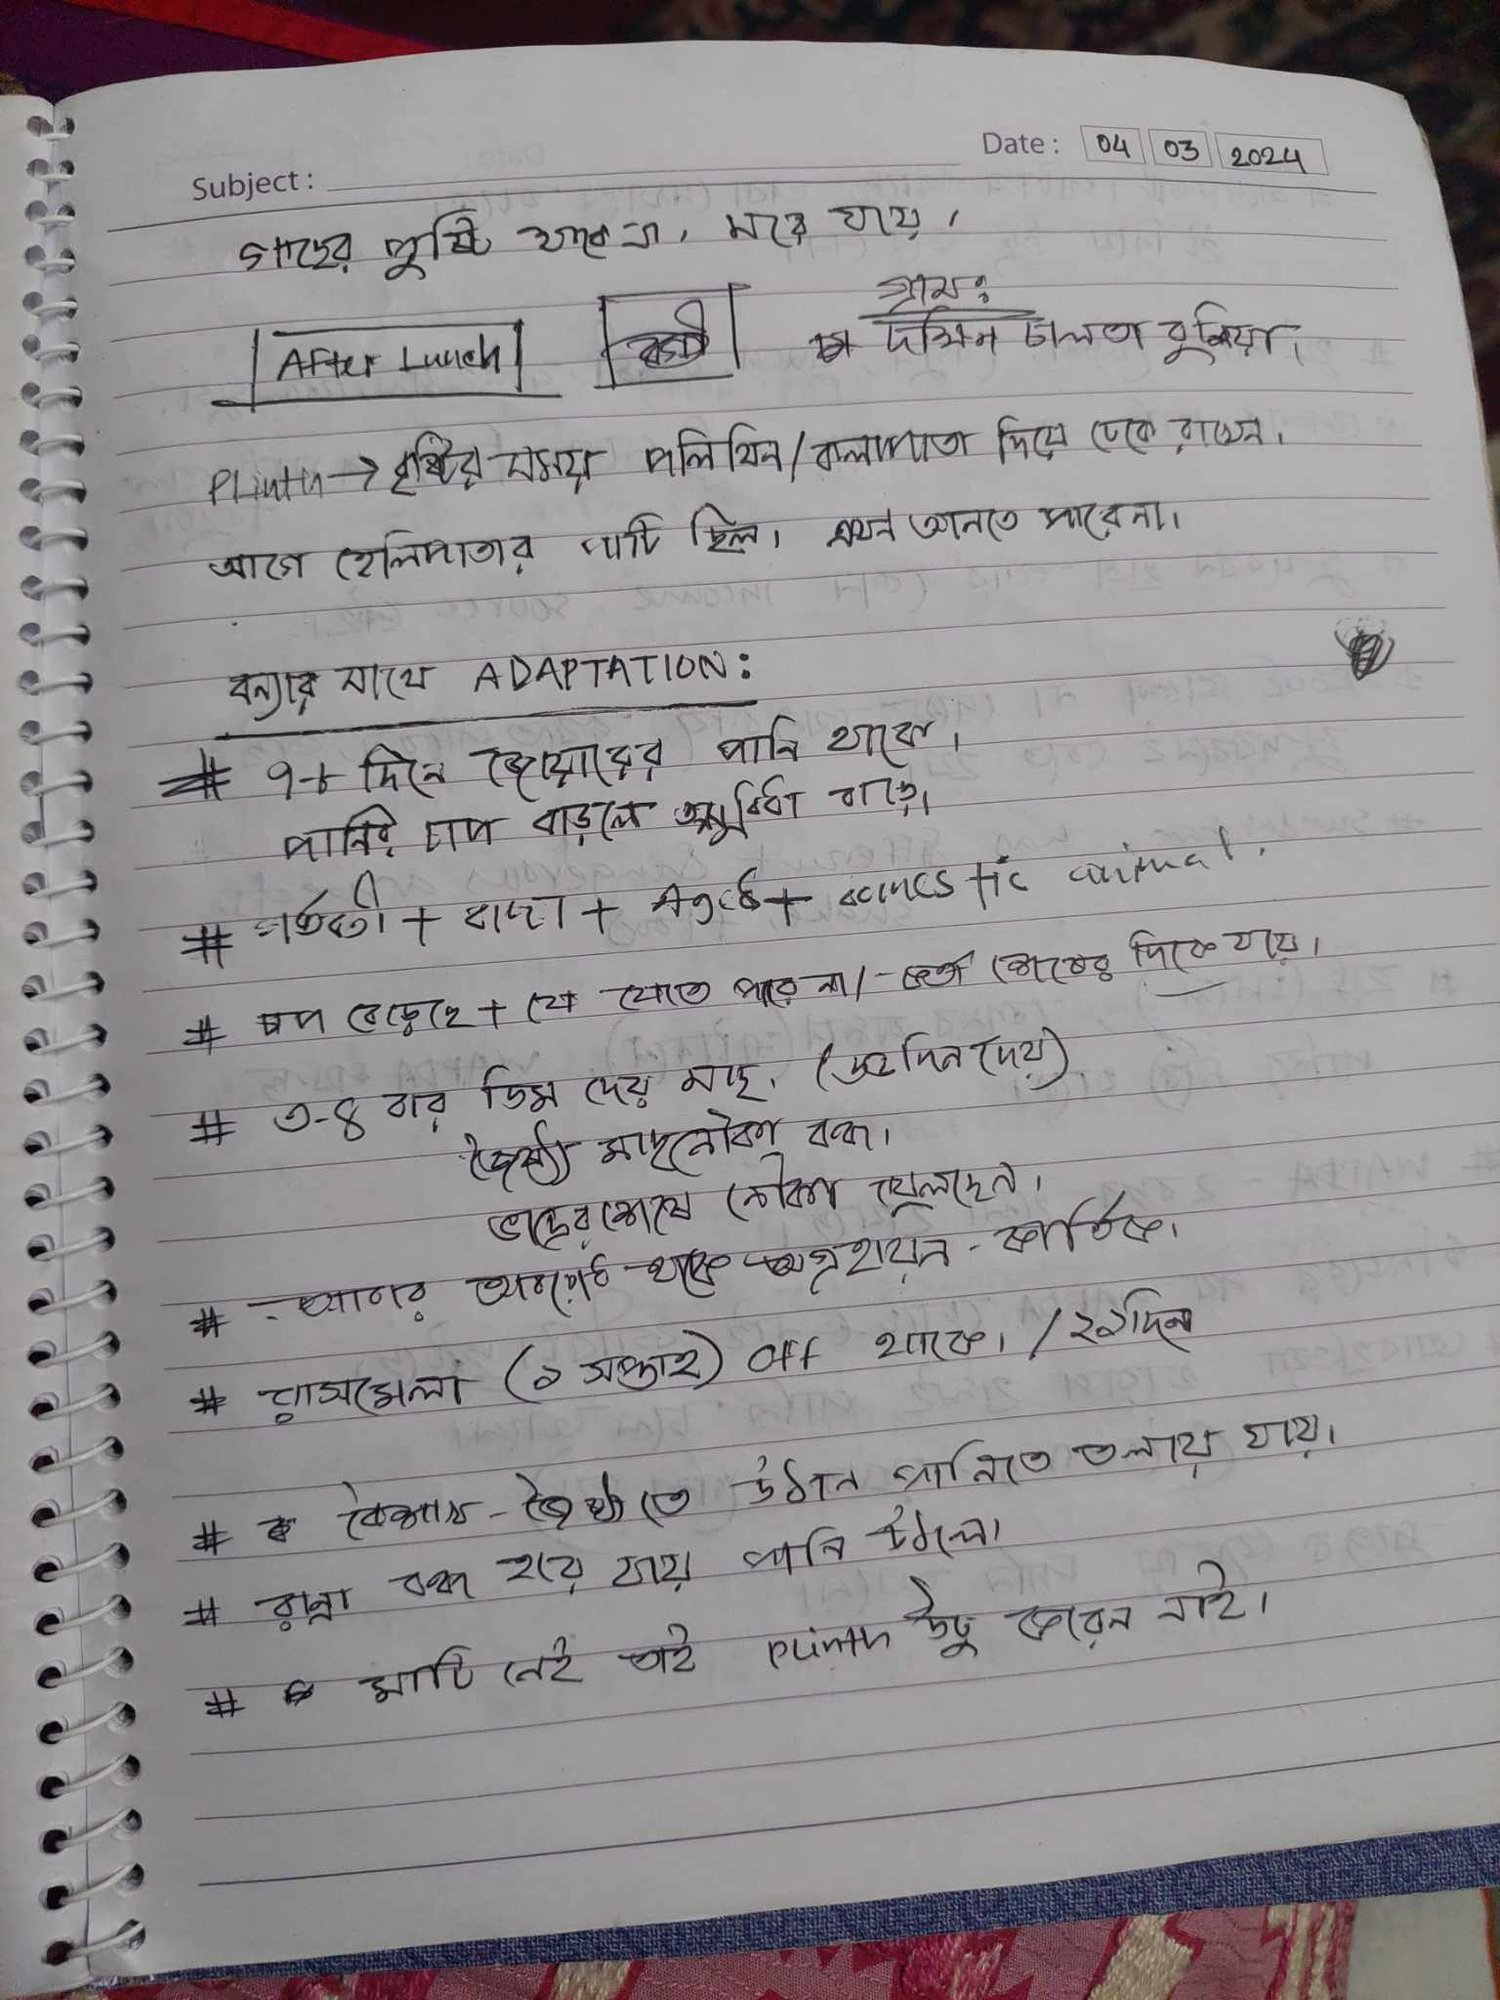 Subject :
Date : 04 03 2024
গাছের পুষ্টি থাকেনা, মরে যায়,
গ্রামঃ
After Lunch
দক্ষিন চালতা বুনিয়া,
Plinth → বৃষ্টির সময় পলিথিন/কলাপাতা দিয়ে ঢেকে রাখেন।
আগে হেলিপাতার পাটি ছিল। এখন আনতে পারেনা।
বন্যার সাথে ADAPTATION:
# ৭-৮ দিনে জোয়ারের পানি থাকে।
পানির চাপ বাড়লে অসুবিধা বাড়ে।
# গর্ভবতী + বাচ্চা + Aged + domestic animal.
# চাপ বেড়েছে + যে যেতে পারে না/ শেষের দিকে যায়।
# ৩-৪ বার ডিম দেয় মাছ, (৩২ দিন দেয়)
জৈষ্ঠ্যে মাছ নৌকা বন্ধ।
ভাদ্রের শেষে নৌকা খুলছেন।
# আবার আগষ্ট থেকে অগ্রহায়ন - কার্তিক।
# রাসমেলা (১ সপ্তাহ) off থাকে। /২২দিন
# বৈশাখ - জৈষ্ঠ্যতে উঠান পানিতে তলায়ে যায়।
# রান্না বন্ধ হয়ে যায় পানি উঠলে।
# মাটি নেই তাই plinth উঁচু করেন নাই।